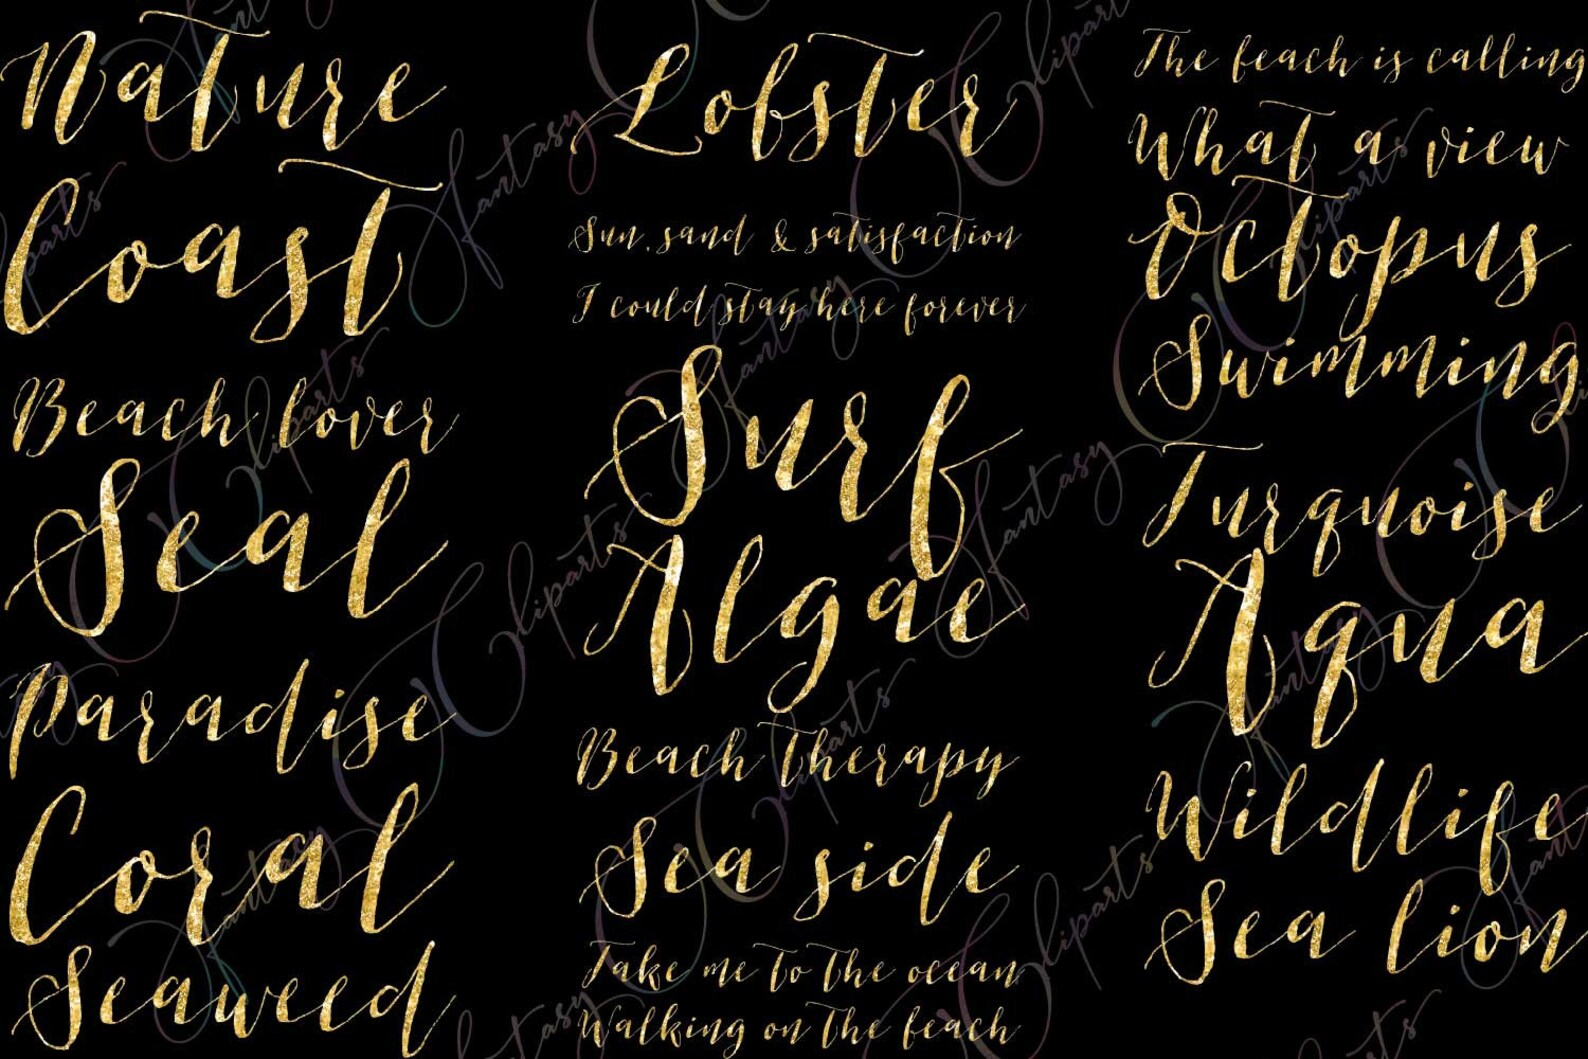 Nature
Coast
Beach lover
Seal
Paradise
Coral
Seaweed
Lobster
Sun, sand & satisfaction
I could stay here forever
Surf
Algae
Beach therapy
Sea side
Take me to the ocean
Walking on the beach
The beach is calling
What a view
Octopus
Swimming
Turquoise
Aqua
Wildlife
Sea lion
Fantasy Cliparts